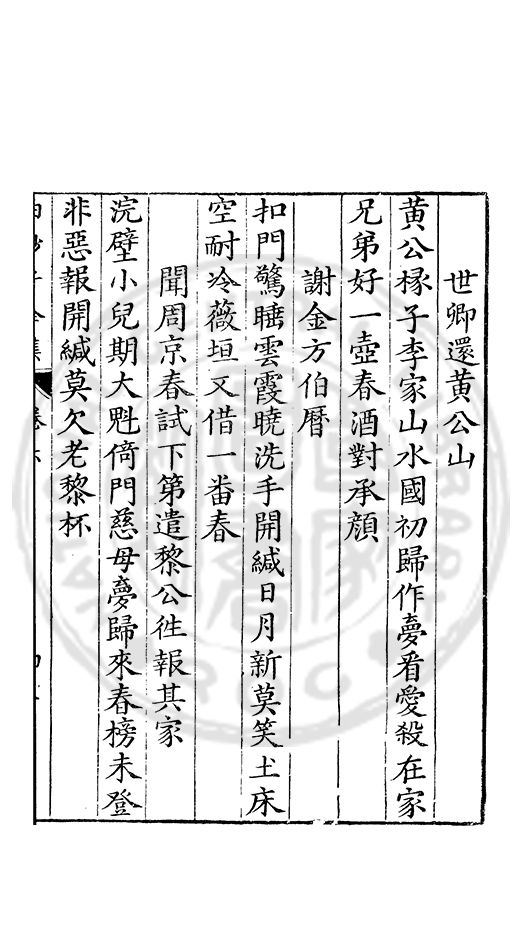 世卿還黃公山
黃公椽子李家山水國初歸作夢看愛殺在家
兄弟好一壺春酒對承顏
謝金方伯曆
扣門驚睡雲霞曉洗手開緘日月新莫笑土床
空耐冷薇垣又借一番春
聞周京春試下第遣黎公徃報其家
浣壁小兒期大魁倚門慈母夢歸來春榜未登
非惡報開緘莫欠老黎杯